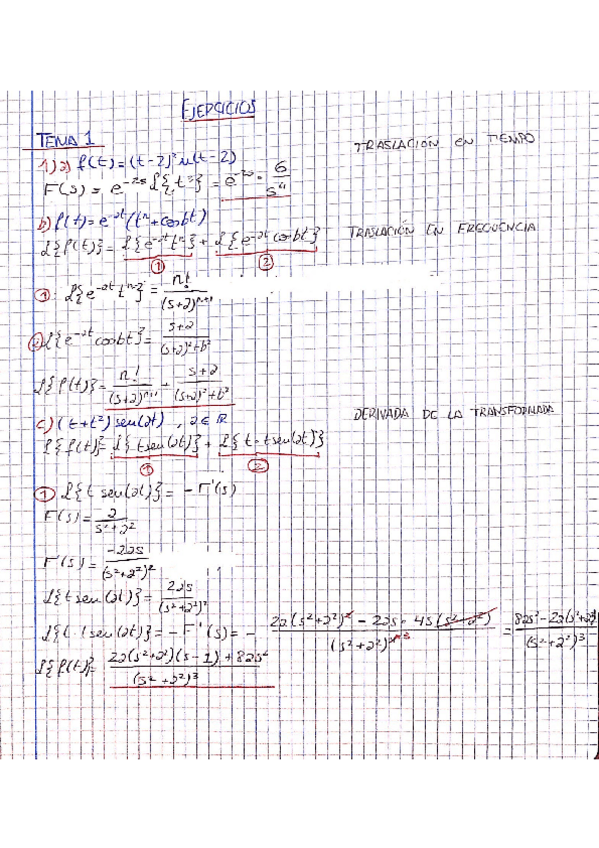 EJERCICIOS
TEMA 1
TRASLACIÓN EN TIEMPO
1) a) f(t) = (t-2)³u(t-2)
F(s) = e^-2s L{t³} = e^-2s · 6/s⁴
b) f(t) = e^-2t(t^n + cos bt)
TRASLACIÓN EN FRECUENCIA
L{f(t)} = L{e^-2t t^n} + L{e^-2t cos bt}
① ②
① L{e^-2t t^n} = n!/(s+2)^n+1
② L{e^-2t cos bt} = s+2/(s+2)²+b²
L{f(t)} = n!/(s+2)^n+1 + s+2/(s+2)²+b²
c) (t+t²) sen(at) , a ∈ R
DERIVADA DE LA TRANSFORMADA
L{f(t)} = L{t sen(at)} + L{t · t sen(at)}
① ②
① L{t sen(at)} = -F'(s)
F(s) = a/s²+a²
F'(s) = -2as/(s²+a²)²
L{t sen(at)} = 2as/(s²+a²)²
L{t · t sen(at)} = -F'(s) = - 2a(s²+a²)² - 2as · 4s(s²+a²)/(s²+a²)⁴ ³ = 8as² - 2a(s²+a²)/(s²+a²)³
L{f(t)} = 2a(s²+a²)(s-1) + 8as²/(s²+a²)³